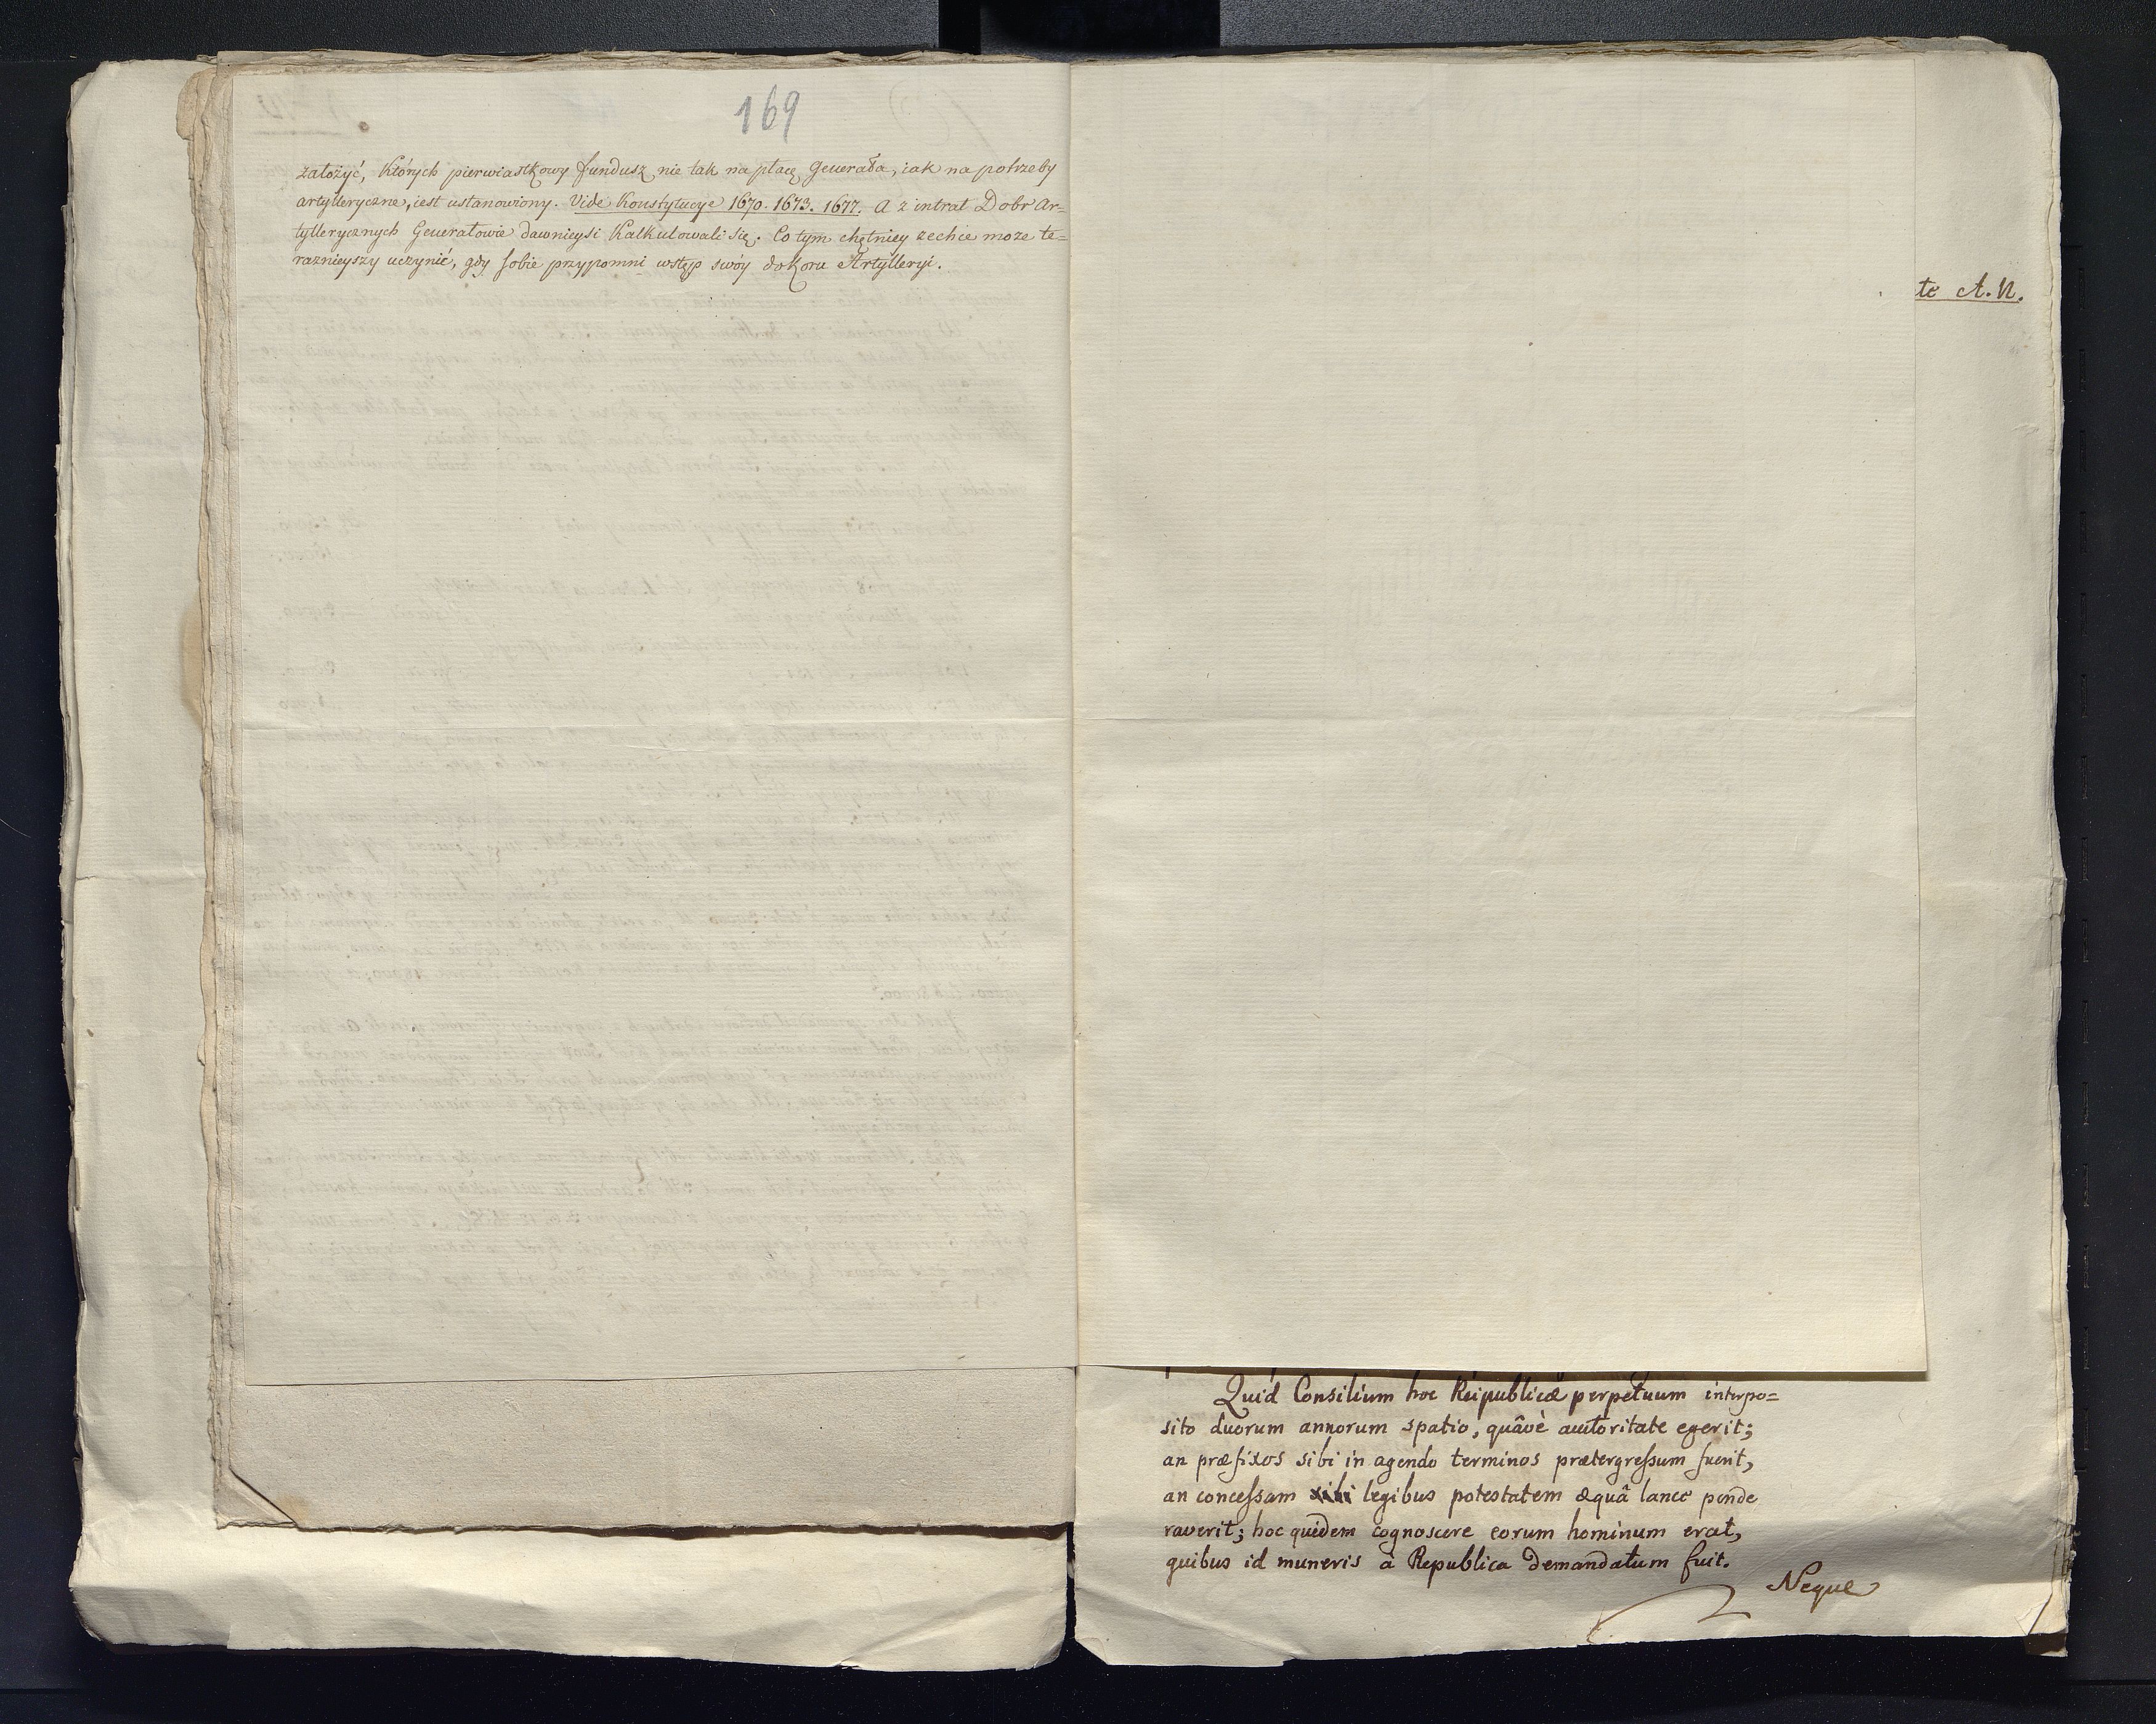 169
założyć, których pierwiastkowy fundusz nie tak na płacę Generała, iak na potrzeby
artylleryczne, iest ustanowiony. Vide Konstytucye 1670. 1673. 1677. A z intrat Dobr Ar=
tyllerycznych Generałowie dawnieysi Kalkulowali się. Co tym chętniey zechce może te=
raznieyszy uczynić, gdy sobie przypomni wstęp swóy do Koru Artylleryi.
te A. N.
Quid Consilium hoc Reipublicæ perpetuum interpo=
sito duorum annorum spatio, quâvè autoritate egerit;
an præfixos sibi in agendo terminos prætergressum fuerit,
an concessam sibi legibus potestatem æquâ lance ponde
raverit; hoc quidem cognoscere eorum hominum erat,
quibus id muneris à Republica demandatum fuit.
Neque